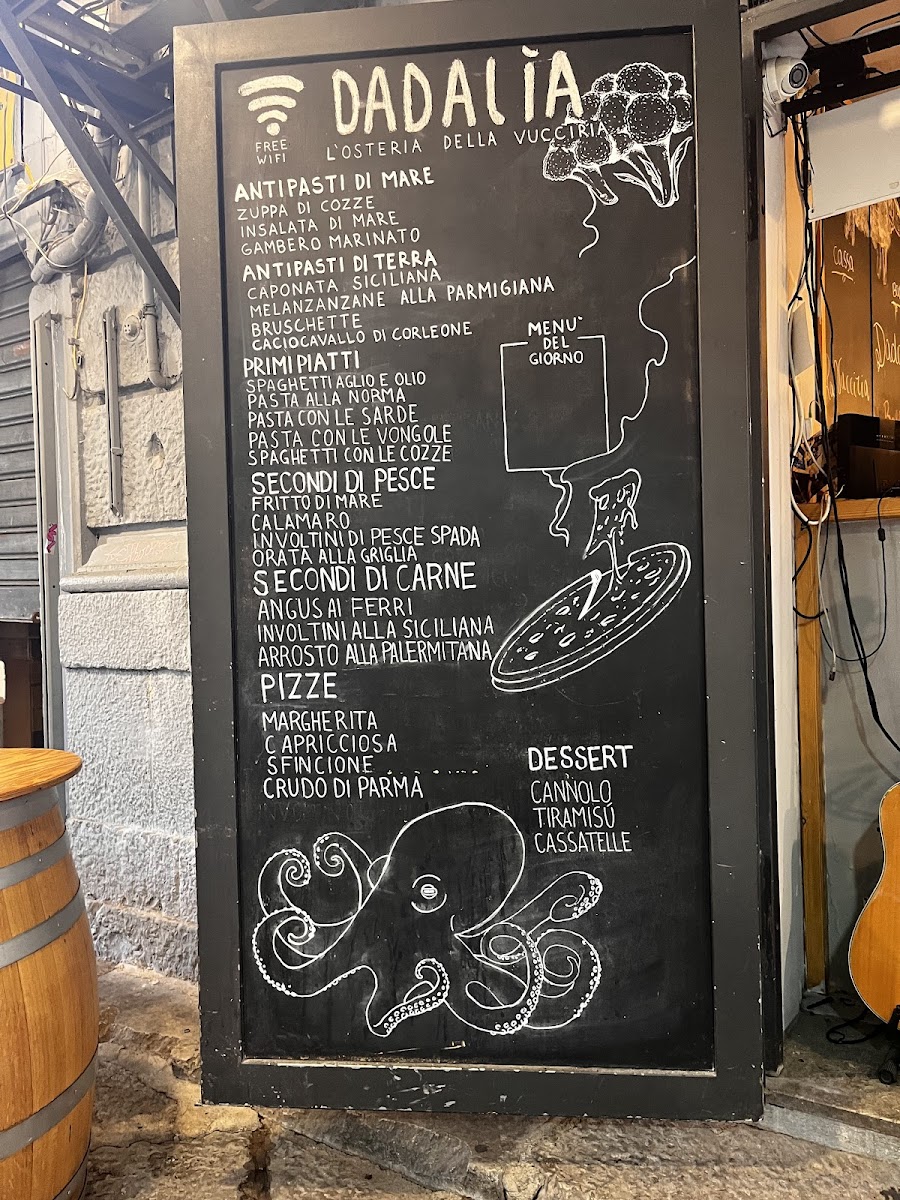 FREE
WIFI
DADALÌA
L'OSTERIA DELLA VUCCIRIA
ANTIPASTI DI MARE
ZUPPA DI COZZE
INSALATA DI MARE
GAMBERO MARINATO
ANTIPASTI DI TERRA
CAPONATA SICILIANA
MELANZANZANE ALLA PARMIGIANA
BRUSCHETTE
CACIOCAVALLO DI CORLEONE
PRIMI PIATTI
SPAGHETTI AGLIO E OLIO
PASTA ALLA NORMA
PASTA CON LE SARDE
PASTA CON LE VONGOLE
SPAGHETTI CON LE COZZE
MENU'
DEL
GIORNO
SECONDI DI PESCE
FRITTO DI MARE
CALAMARO
INVOLTINI DI PESCE SPADA
ORATA ALLA GRIGLIA
SECONDI DI CARNE
ANGUS AI FERRI
INVOLTINI ALLA SICILIANA
ARROSTO ALLA PALERMITANA
PIZZE
MARGHERITA
CAPRICCIOSA
SFINCIONE
CRUDO DI PARMA
DESSERT
CANNOLO
TIRAMISÚ
CASSATELLE
cassa